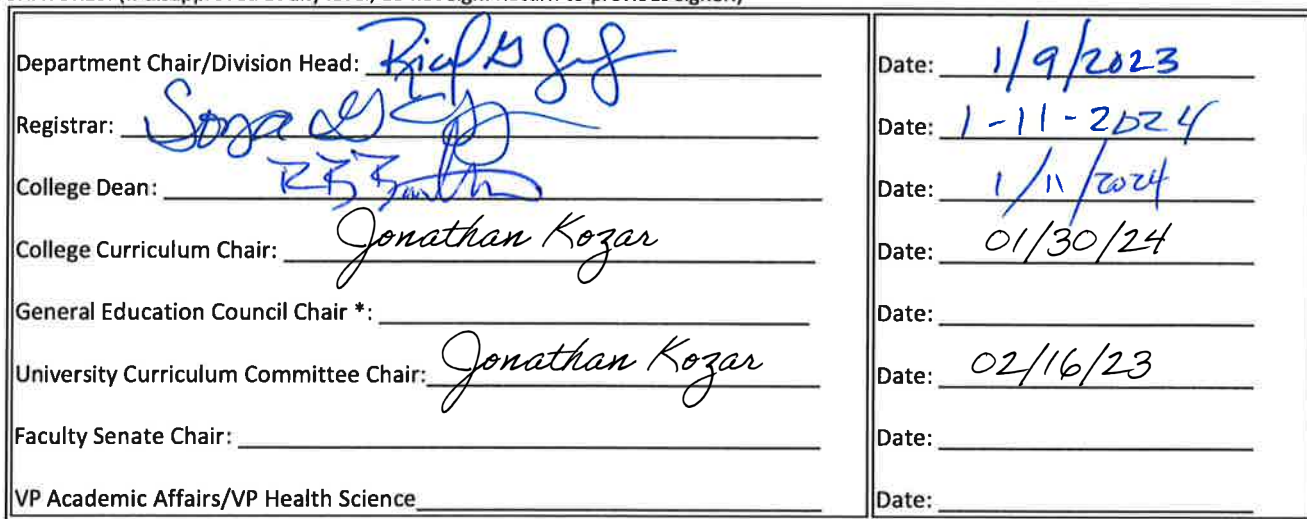 Department Chair/Division Head: Date: 1/9/2023
Registrar: Date: 1-11-2024
College Dean: Date: 1/11/2024
College Curriculum Chair: Jonathan Kozar Date: 01/30/24
General Education Council Chair *: Date:
University Curriculum Committee Chair: Jonathan Kozar Date: 02/16/23
Faculty Senate Chair: Date:
VP Academic Affairs/VP Health Science Date: